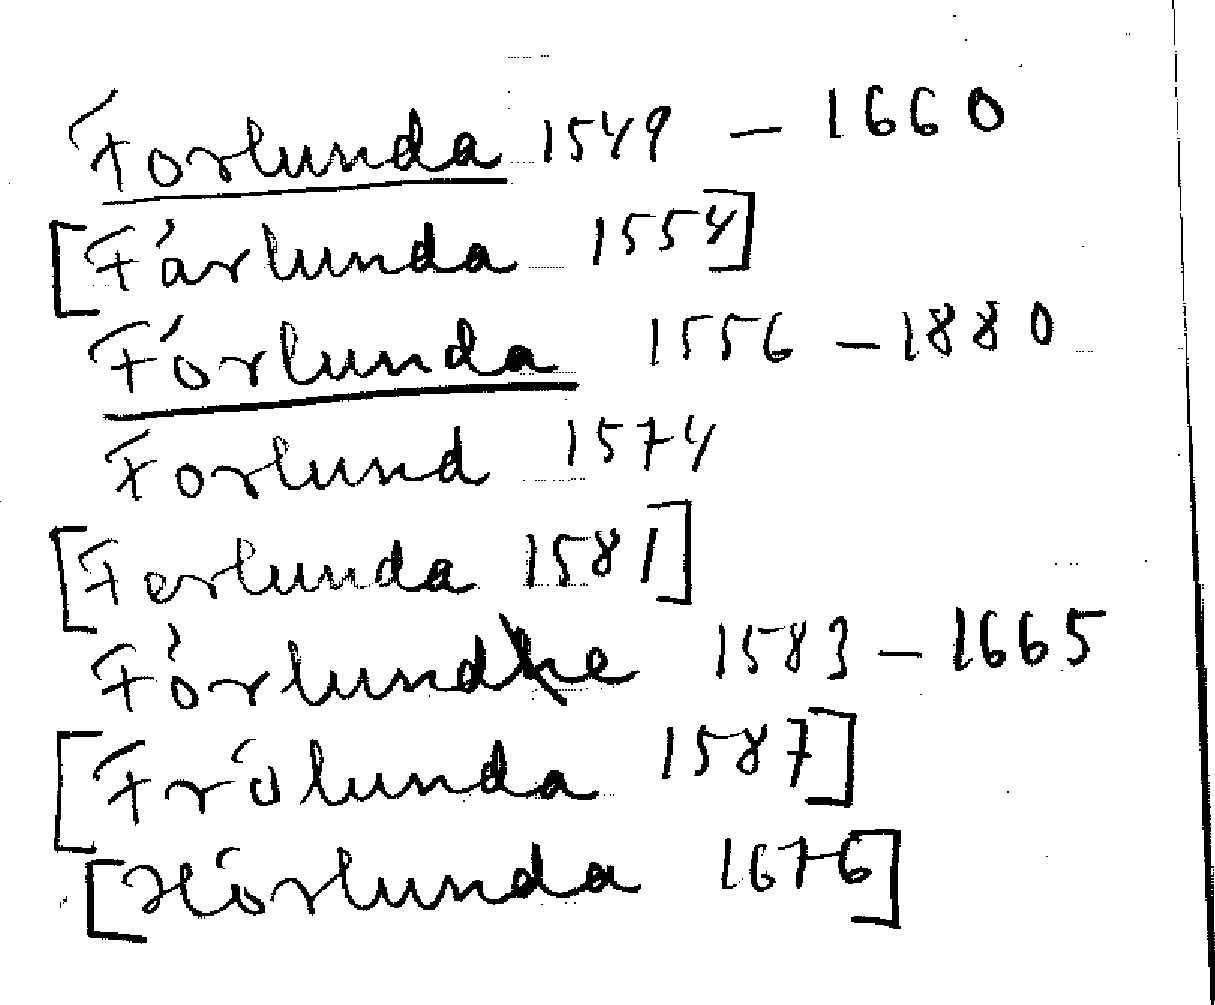 Forlunda 1549 – 1660
[Fárlunda 1554]
Fórlunda 1556 – 1880
Forlund 1574
[Ferlunda 1581]
Fórlundhe 1583 – 1665
[Frólunda 1587]
[Hórlunda 1676]